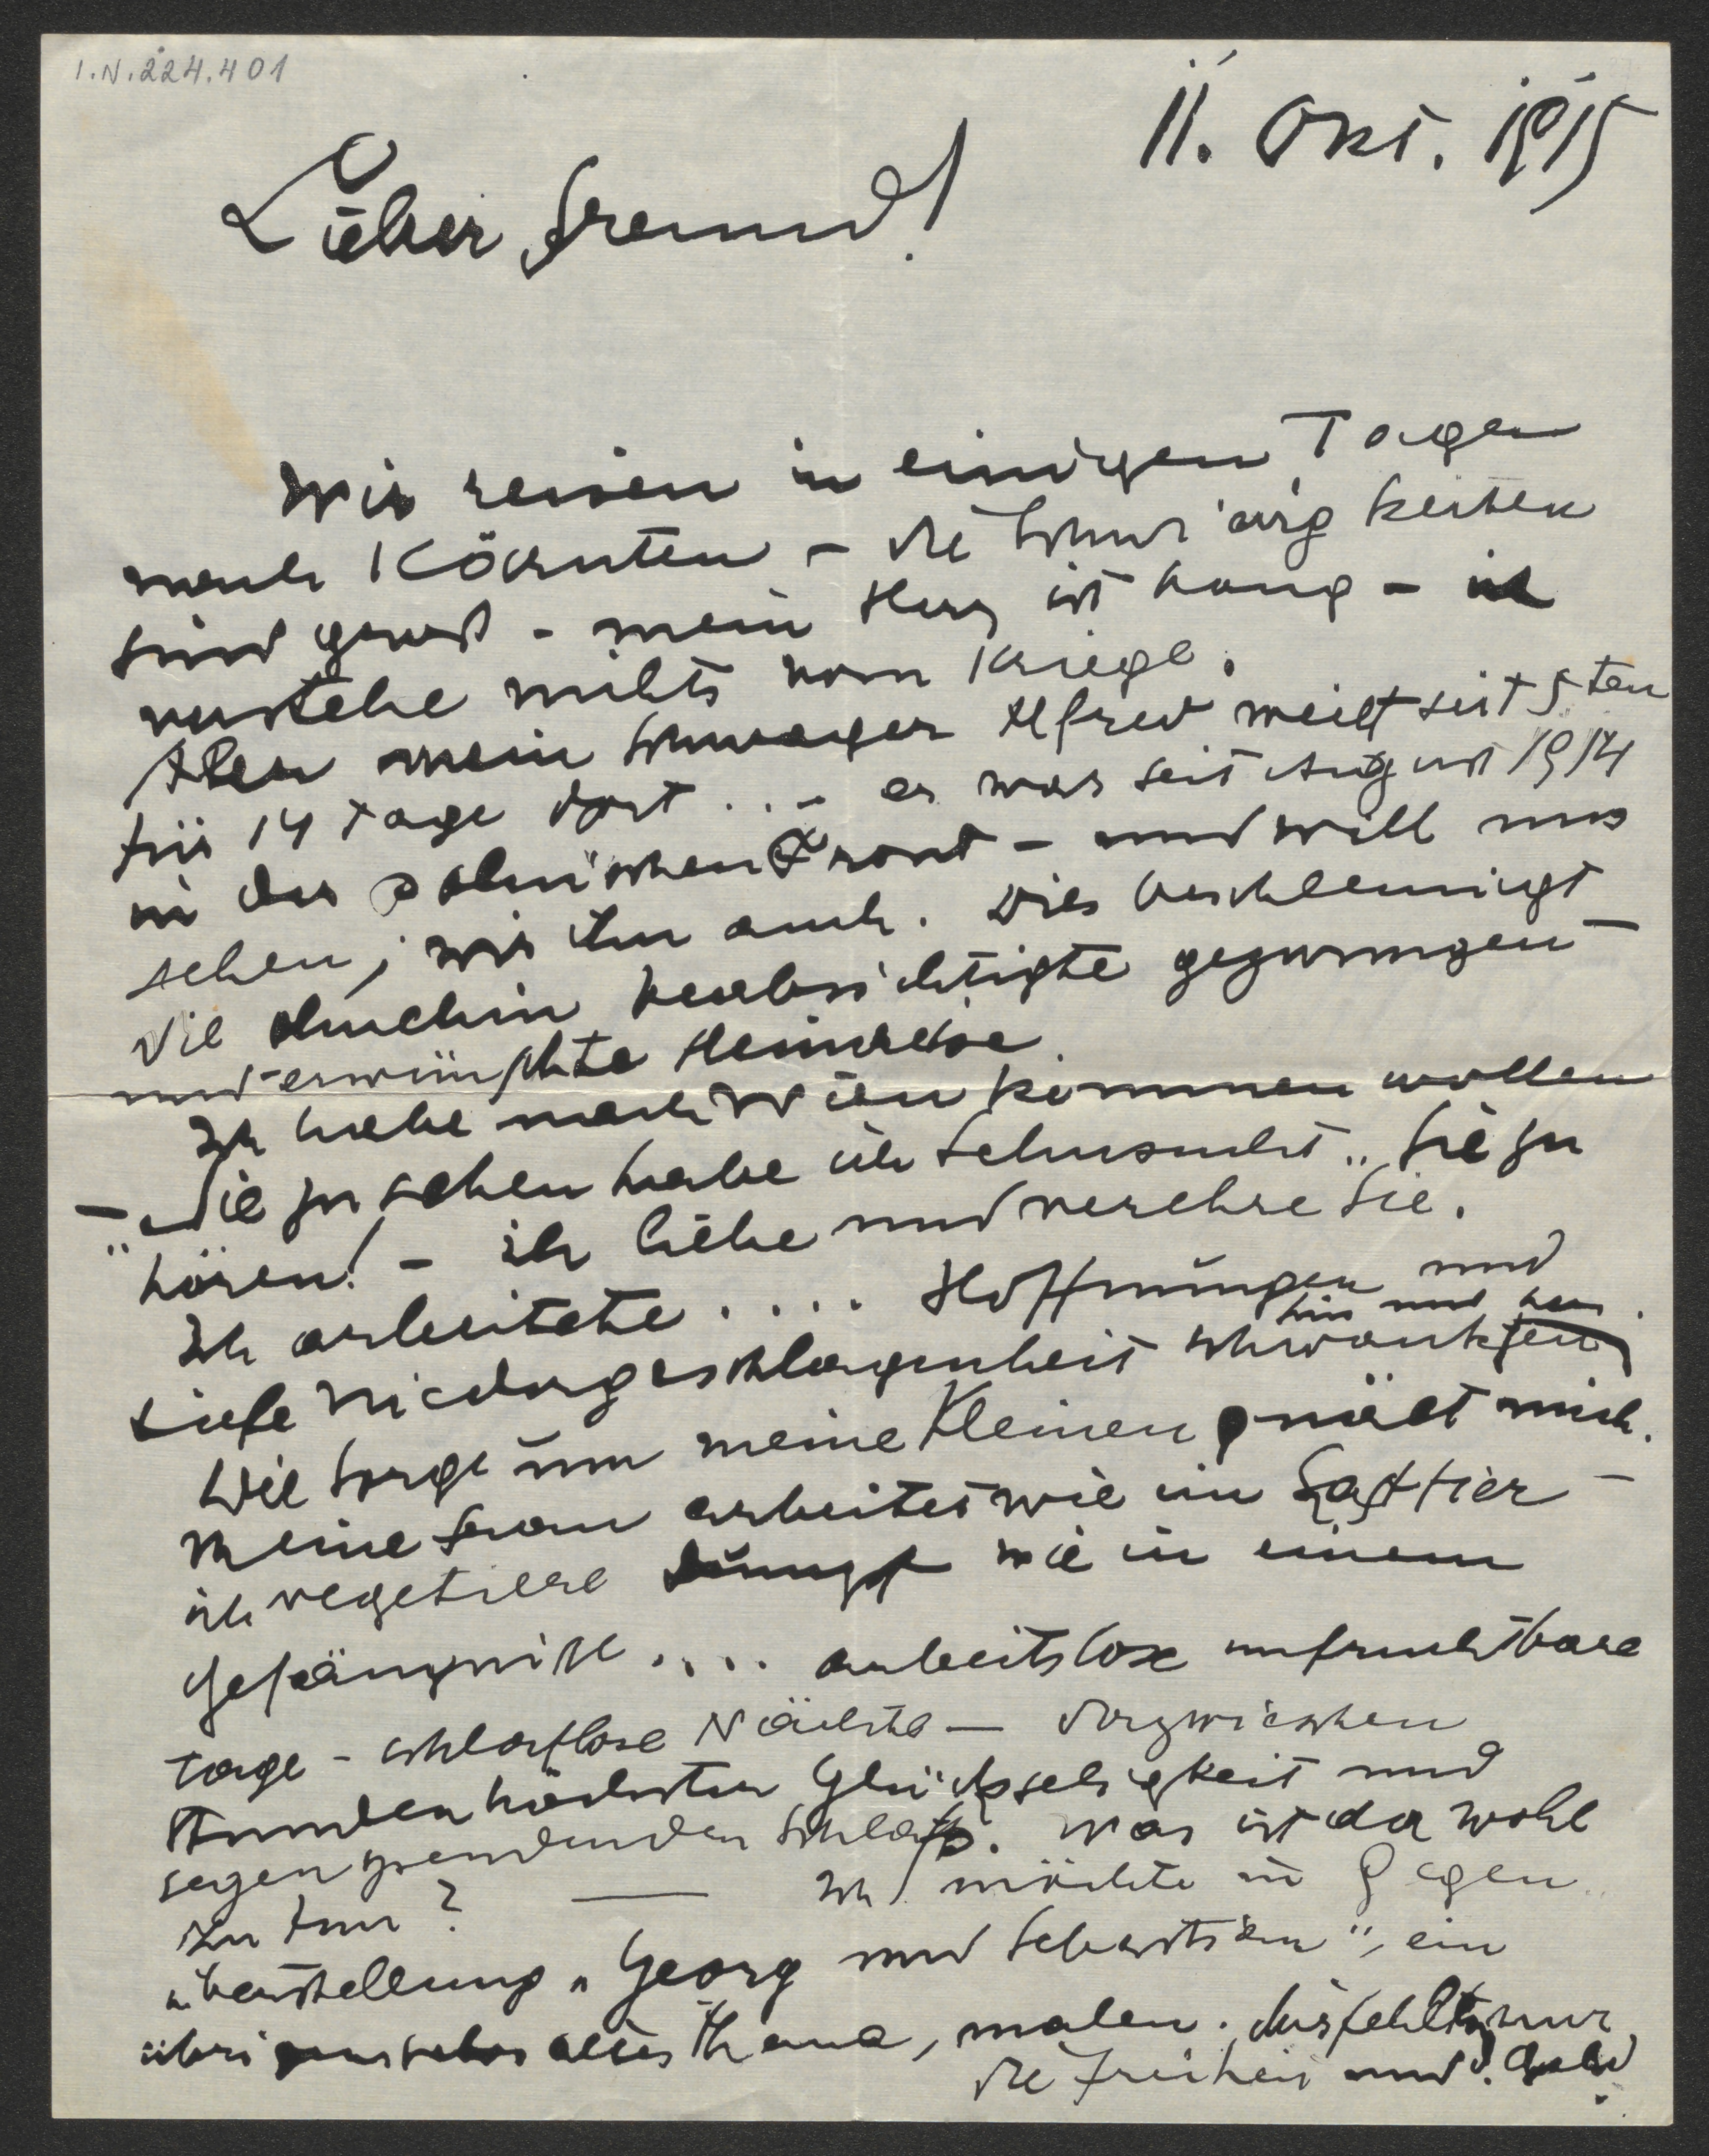 I.N.224.401
11. Okt. 1915
Lieber Freund!
Wir reisen in einigen Tagen
nach Kärnten – die Schwierigkeiten
sind gross – mein Herz ist bang – ich
verstehe nichts vom Kriege.
Aber mein Schwager Alfred weilt seit 5ten
für 14 Tage dort ... – er war seit August 1914
in der polnischen Front – und will uns
sehen, wir ihn auch. Dies beschleunigt
die ohnehin beabsichtigte gezwungen-
und erwünschte Heimreise.
Ich habe nach Wien kommen wollen
– Sie zu sehen habe ich Sehnsucht, Sie zu
hören! – ich liebe und verehre Sie.
Ich arbeitete .... Hoffnungen und
hin und her.
tiefe Niedergeschlagenheit schwankten
Die Sorge um meine Kleinen quält mich.
Meine Frau arbeitet wie ein Lasttier –
ich vegetiere dumpf wie in einem
Gefängniss .... arbeitslose unfruchtbare
Tage – schlaflose Nächte – dazwischen
Stunden höchster Glückseligkeit und
segenspendenden Schlafs. Was ist da wohl
zu tun? — Ich möchte in Gegen
überstellung „Georg und Sebastian", ein
übrigens sehr altes Thema, malen. Mir fehlt nur
die Freiheit und d. Geld.